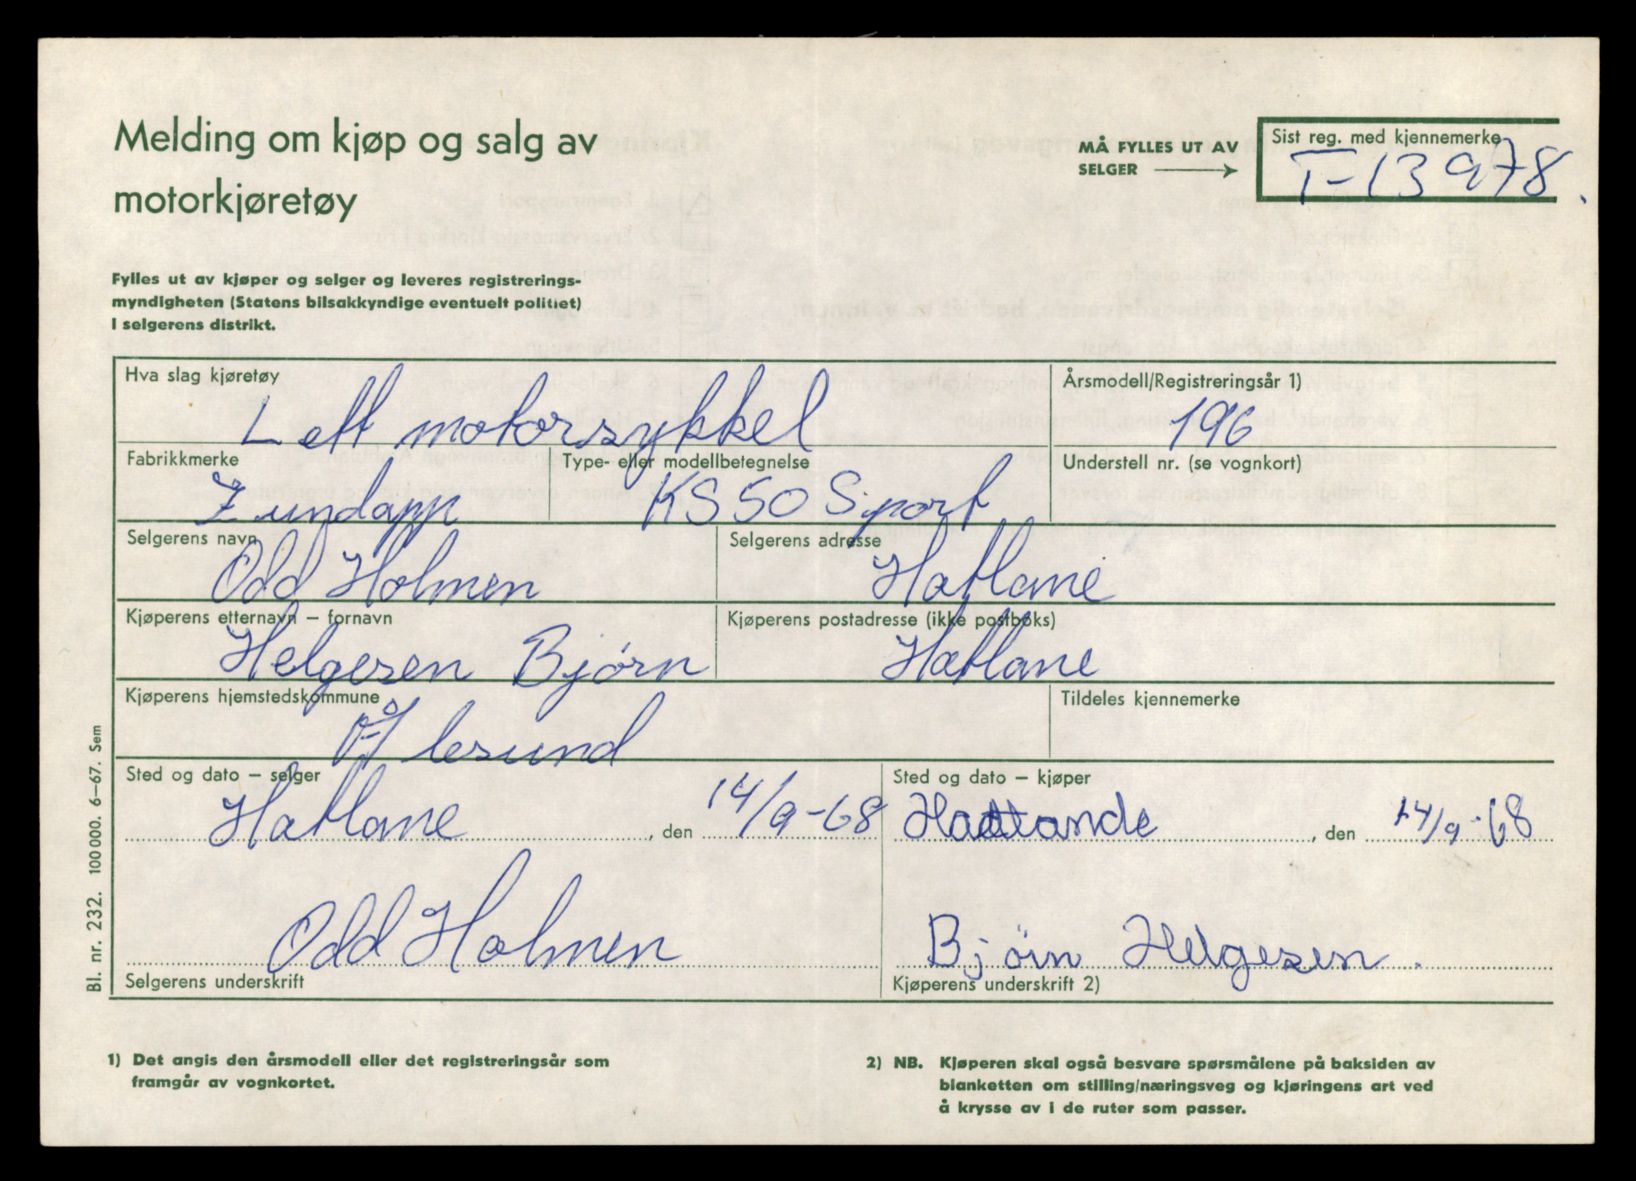 Melding om kjøp og salg av
motorkjøretøy
MÅ FYLLES UT AV
SELGER
Sist reg. med kjennemerke
T-13978.
Fylles ut av kjøper og selger og leveres registrerings-
myndigheten (Statens bilsakkyndige eventuelt politiet)
i selgerens distrikt.
Hva slag kjøretøy
Lett motorsykkel
Årsmodell/Registreringsår 1)
196
Fabrikkmerke
Zundapp
Type- eller modellbetegnelse
KS 50 Sport
Understell nr. (se vognkort)
Selgerens navn
Odd Holmen
Selgerens adresse
Hatlane
Kjøperens etternavn – fornavn
Helgesen Bjørn
Kjøperens postadresse (ikke postboks)
Hatlane
Kjøperens hjemstedskommune
Ålesund
Tildeles kjennemerke
Sted og dato – selger
Hatlane, den 14/9-68
Sted og dato – kjøper
, den 14/9-68
Odd Holmen
Selgerens underskrift
Bjørn Helgesen.
Kjøperens underskrift 2)
Bl. nr. 232. 100 000. 6–67. Sem
1) Det angis den årsmodell eller det registreringsår som
framgår av vognkortet.
2) NB. Kjøperen skal også besvare spørsmålene på baksiden av
blanketten om stilling/næringsveg og kjøringens art ved
å krysse av i de ruter som passer.